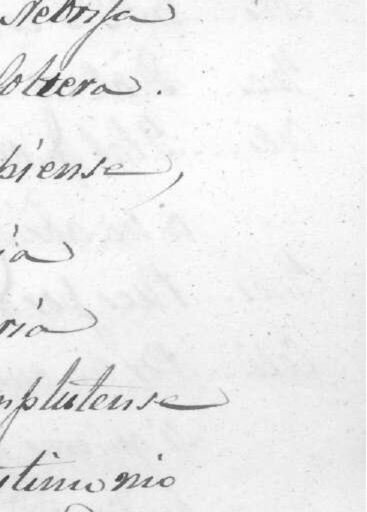 Nebrija
soltera.
biense,
ia
ria
mplutense
stimonio